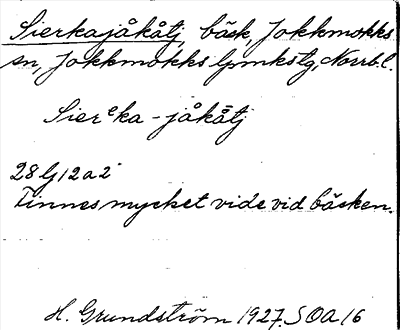 Sierkajåkåtj, bäck, Jokkmokks
sn, Jokkmokks lpmkstg, Norrb.l.
Sierᵉka-jåkåtj
28 G 12 a 2
Finnes mycket vide vid bäcken.
H. Grundström 1927. SOA 16